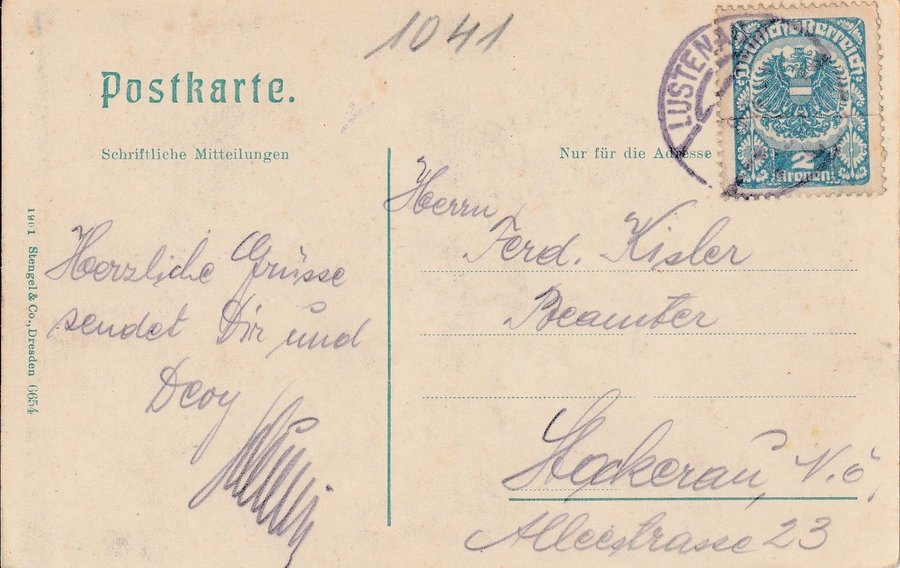 1041
Postkarte.
Schriftliche Mitteilungen
Nur für die Adresse
LUSTENA
Deutschösterreich
2
Kronen
Herrn
Ferd. Kisler
Beamter
Stockerau, N.ö,
Alleestrasse 23
Herzliche Grüsse
sendet Dir und
1901 Stengel & Co., Dresden 6654